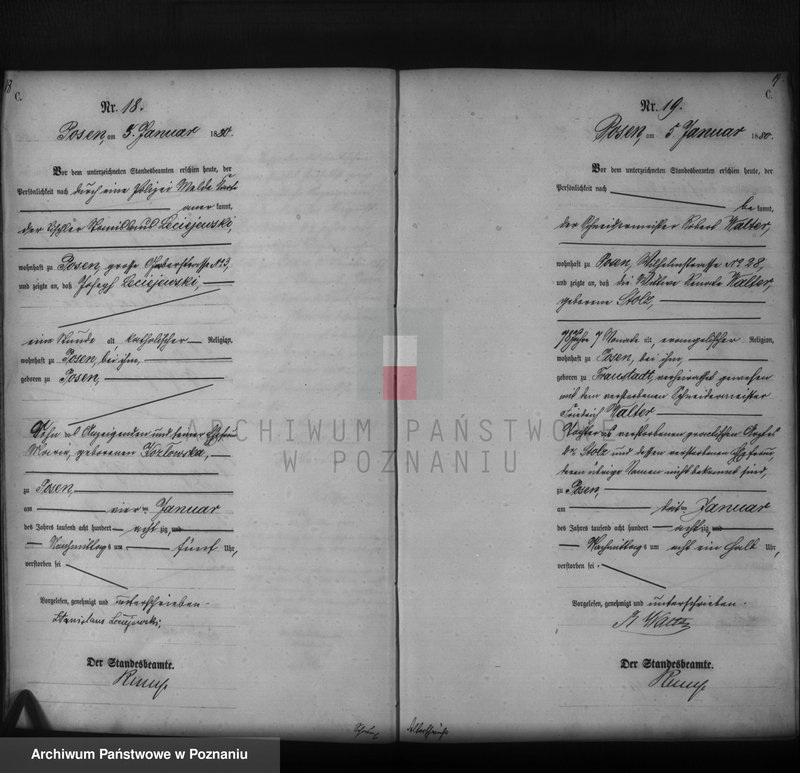 C.
Nr. 18.
Posen, am 5. Januar 1880.
Vor dem unterzeichneten Standesbeamten erschien heute, der
Persönlichkeit nach durch eine Polizei Melde Karte
anerkannt,
der Tischler Stanislaus Leciejewski,
wohnhaft zu Posen, große
und zeigte an, daß Joseph Leciejewski,
eine Stunde alt, katholischer Religion,
wohnhaft zu Posen, bei ihm,
geboren zu Posen,
Sohn des Anzeigenden und seiner Ehefrau
Maria, geborenen Kozlowska,
zu Posen,
am vierten Januar
des Jahres tausend acht hundert achtzig,
Nachmittags um fünf Uhr,
verstorben sei
Vorgelesen, genehmigt und unterschrieben
Der Standesbeamte.
C.
Nr. 19.
Posen, am 5. Januar 1880.
Vor dem unterzeichneten Standesbeamten erschien heute, der
Persönlichkeit nach
bekannt,
der Schneidermeister Robert Walter,
wohnhaft zu Posen, Wilhelmstrasse No 28,
und zeigte an, daß die Wittwe Renate Walter,
geborene Stolz,
78 Jahre 7 Monate alt, evangelischer Religion,
wohnhaft zu Posen, bei ihm,
geboren zu Fraustadt, verheirathet gewesen
mit dem verstorbenen Schneidermeister
Friedrich Walter
Tochter des verstorbenen
Stolz und dessen verstorbenen Ehefrau,
deren übrige Namen nicht bekannt sind,
zu Posen,
am dritten Januar
des Jahres tausend acht hundert achtzig,
Nachmittags um acht ein halb Uhr,
verstorben sei.
Vorgelesen, genehmigt und unterschrieben.
R. Walter
Der Standesbeamte.
ARCHIWUM PAŃSTWOWE
W POZNANIU
Archiwum Państwowe w Poznaniu